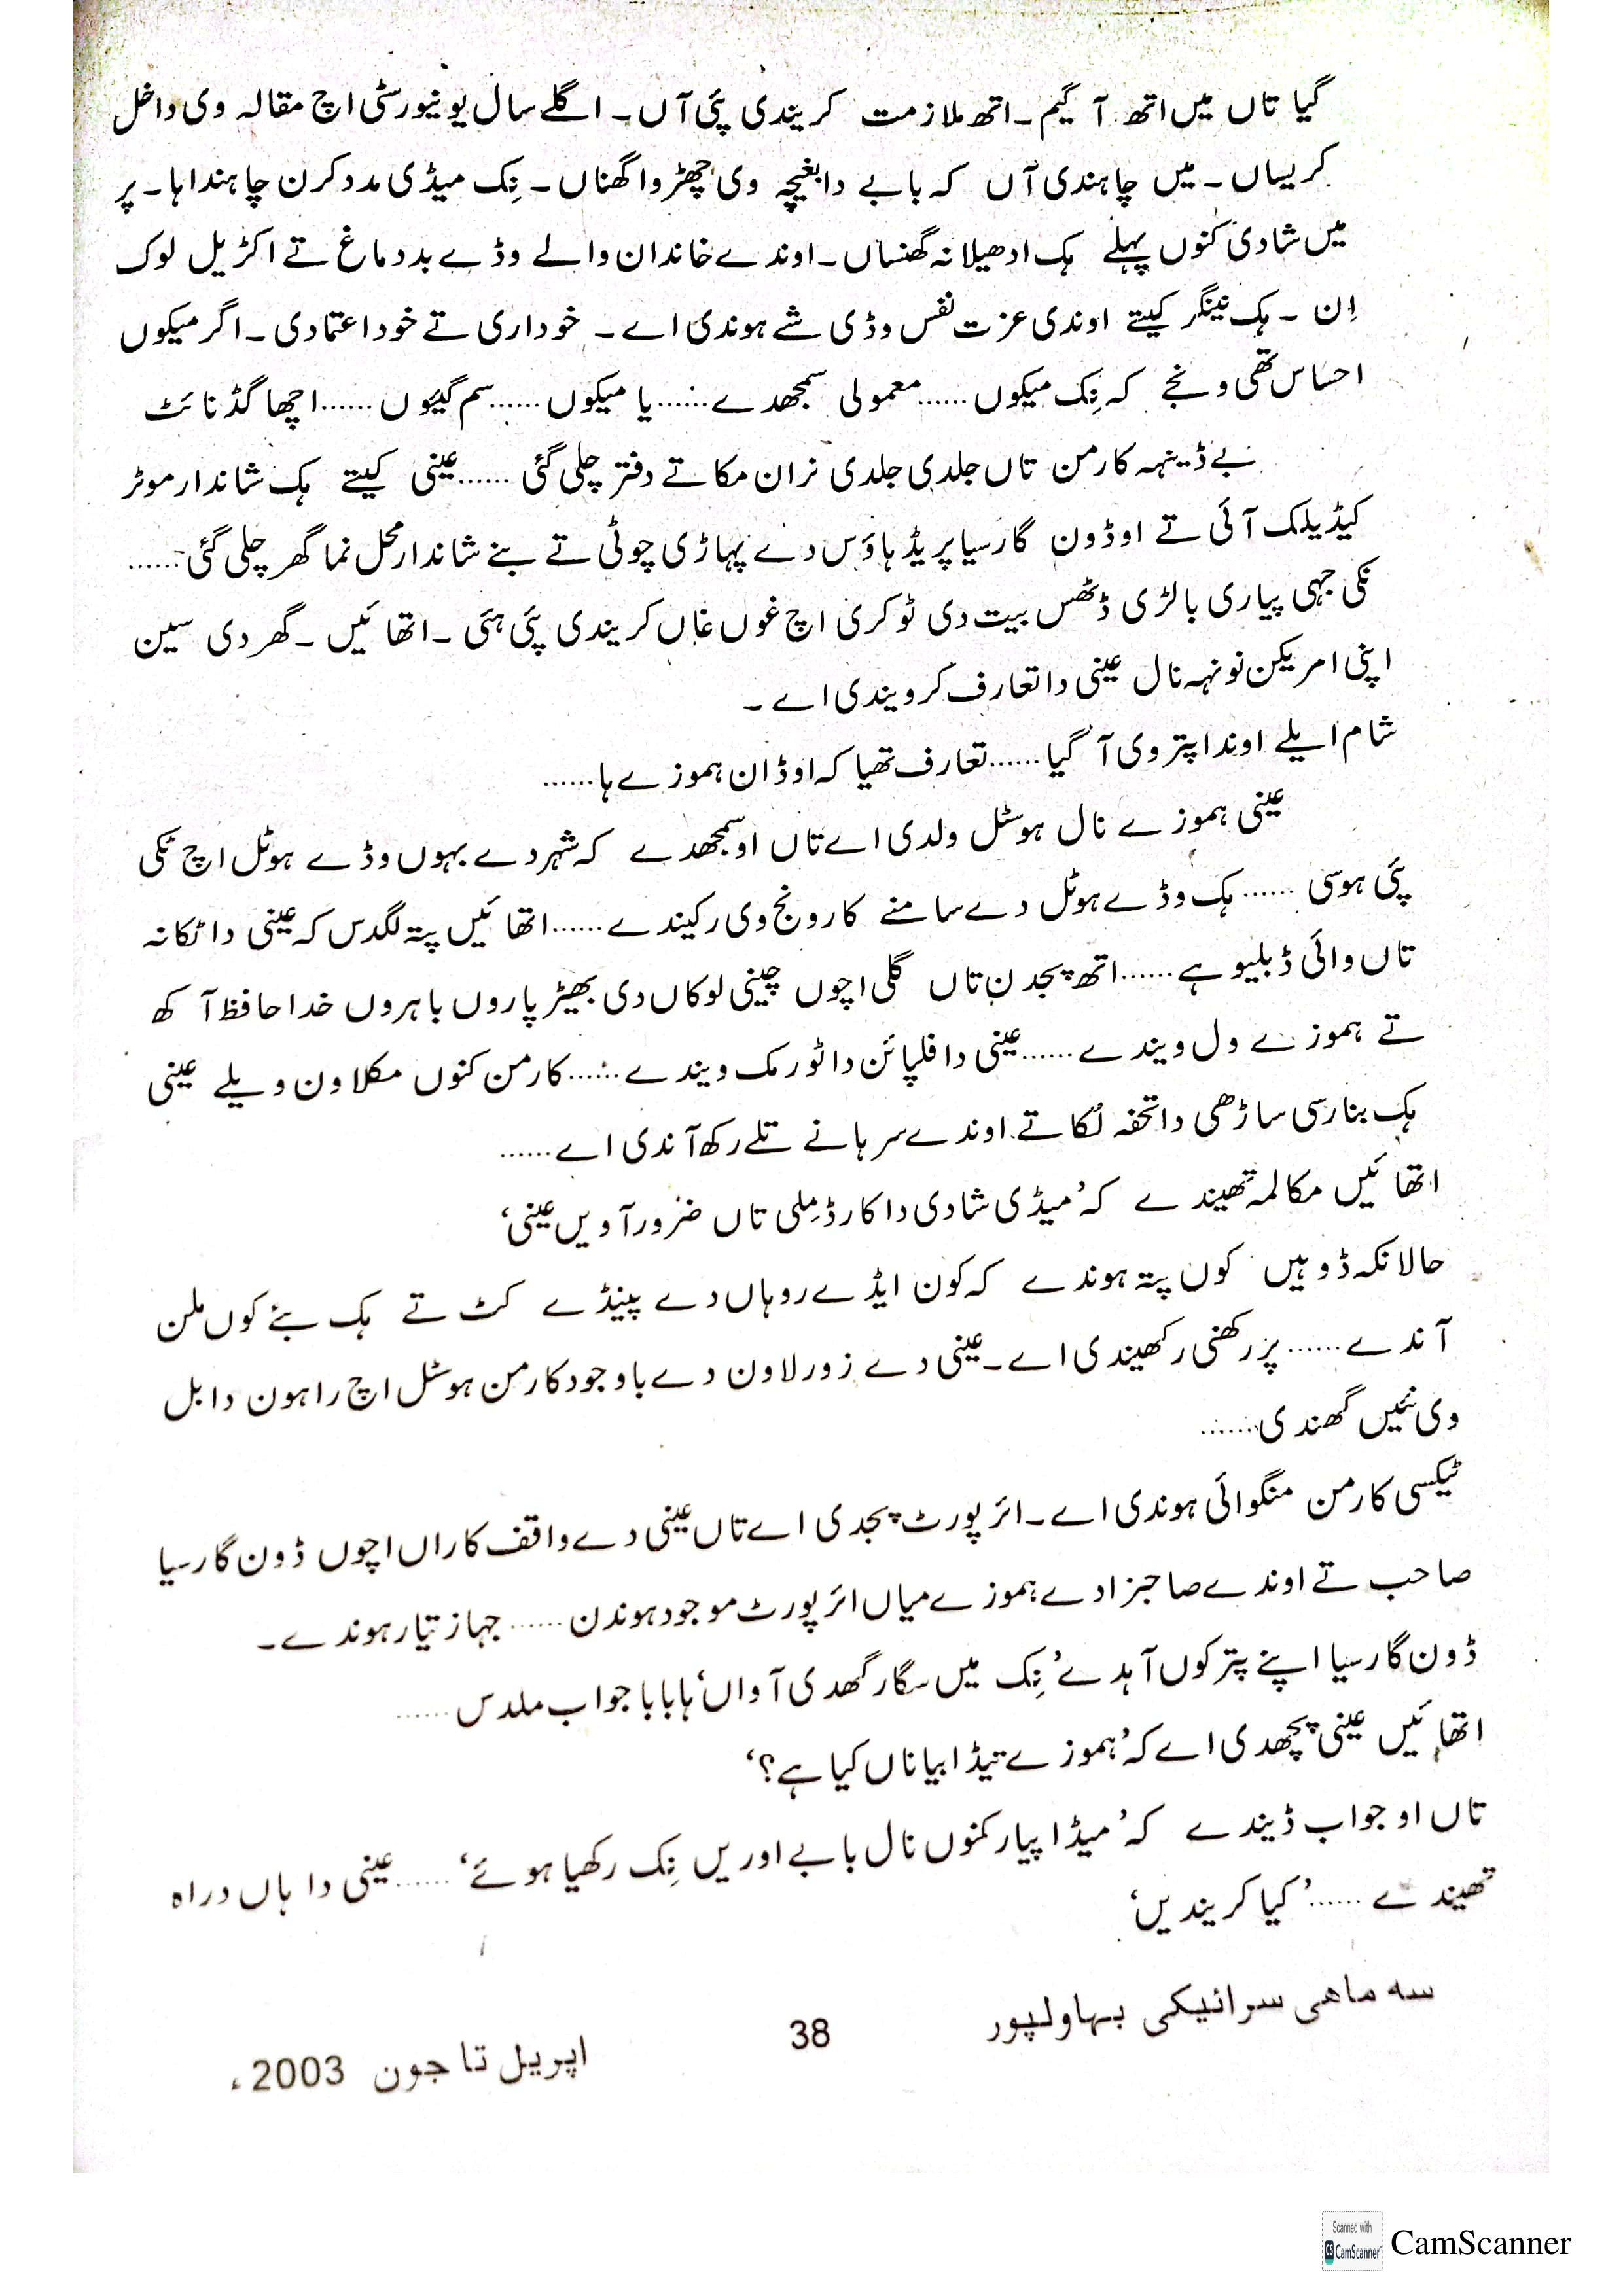 گیا تاں میں اتھ آ گیم۔ اتھ ملازمت کریندی پئی آں۔ اگلے سال یونیورسٹی اچ مقالہ وی داخل
کریساں۔ میں چاہندی آں کہ بابے دا بغیچہ وی چھڑوا گھناں۔ نِک میڈی مدد کرن چاہندا ہا۔ پر
میں شادی کنوں پہلے ہک ادھیلا نہ گھنساں۔ اوندے خاندان والے وڈے بددماغ تے اکڑیل لوک
اِن ۔ ہک نینگر کیتے اوندی عزت نفس وڈی شے ہوندی اے ۔ خوداری تے خود اعتمادی۔ اگر میکوں
احساس تھی ونجے کہ نِک میکوں...... معمولی سمجھدے...... یا میکوں...... سم گیوں...... اچھا گڈ نائٹ
بے ڈینہہ کارمن تاں جلدی جلدی نران مکا تے دفتر چلی گئی ...... عینی کیتے ہک شاندار موٹر
کیڈیلک آئی تے او ڈون گارسیا پریڈ ہاؤس دے پہاڑی چوٹی تے بنے شاندار محل نما گھر چلی گئی......
نکی جہی پیاری بالڑی ڈٹھس بیت دی ٹوکری اچ غوں غاں کریندی پئی ہئی ۔ اتھائیں ۔ گھر دی سین
اپنی امریکن نونہہ نال عینی دا تعارف کرویندی اے ۔
شام ایلے اوندا پتر وی آ گیا...... تعارف تھیا کہ او ڈان ہموزے ہا......
عینی ہموزے نال ہوسٹل ولدی اے تاں او سمجھدے کہ شہر دے بہوں وڈے ہوٹل اچ ٹکی
پئی ہوسی ...... ہک وڈے ہوٹل دے سامنے کار ونج وی رکیندے...... اتھائیں پتہ لگدس کہ عینی دا ٹکانہ
تاں وائی ڈبلیو ہے...... اتھ پجدن تاں گلی اچوں چینی لوکاں دی بھیڑ پاروں باہروں خدا حافظ آکھ
تے ہموزے ول ویندے ...... عینی دا فلپائن دا ٹور مک ویندے...... کارمن کنوں مکلاون ویلے عینی
ہک بنارسی ساڑھی دا تحفہ لُکا تے اوندے سرہانے تلے رکھ آندی اے......
اتھائیں مکالمہ تھیندے کہ ’میڈی شادی دا کارڈ مِلی تاں ضرور آویں عینی‘
حالانکہ ڈوہیں کوں پتہ ہوندے کہ کون ایڈے روہاں دے پینڈے کٹ تے ہک بئے کوں ملن
آندے ...... پر رکھنی رکھیندی اے۔ عینی دے زور لاون دے باوجود کارمن ہوسٹل اچ راہون دا بل
وی نئیں گھندی......
ٹیکسی کارمن منگوائی ہوندی اے۔ ائرپورٹ پجدی اے تاں عینی دے واقف کاراں اچوں ڈون گارسیا
صاحب تے اوندے صاحبزادے ہموزے میاں ائرپورٹ موجود ہوندن ...... جہاز تیار ہوندے۔
ڈون گارسیا اپنے پتر کوں آہدے ’نِک میں سگار گھدی آواں‘ ہا بابا جواب ملدس ......
اتھائیں عینی پچھدی اے کہ ’ہموزے تیڈا بیا ناں کیا ہے؟‘
تاں او جواب ڈیندے کہ ’میڈا پیار کنوں نال بابے اوریں نِک رکھیا ہوئے‘ ...... عینی دا ہاں دراہ
تھیندے ......’ کیا کریندیں‘
سہ ماہی سرائیکی بہاولپور 38 اپریل تا جون 2003ء
Scanned with CamScanner CamScanner